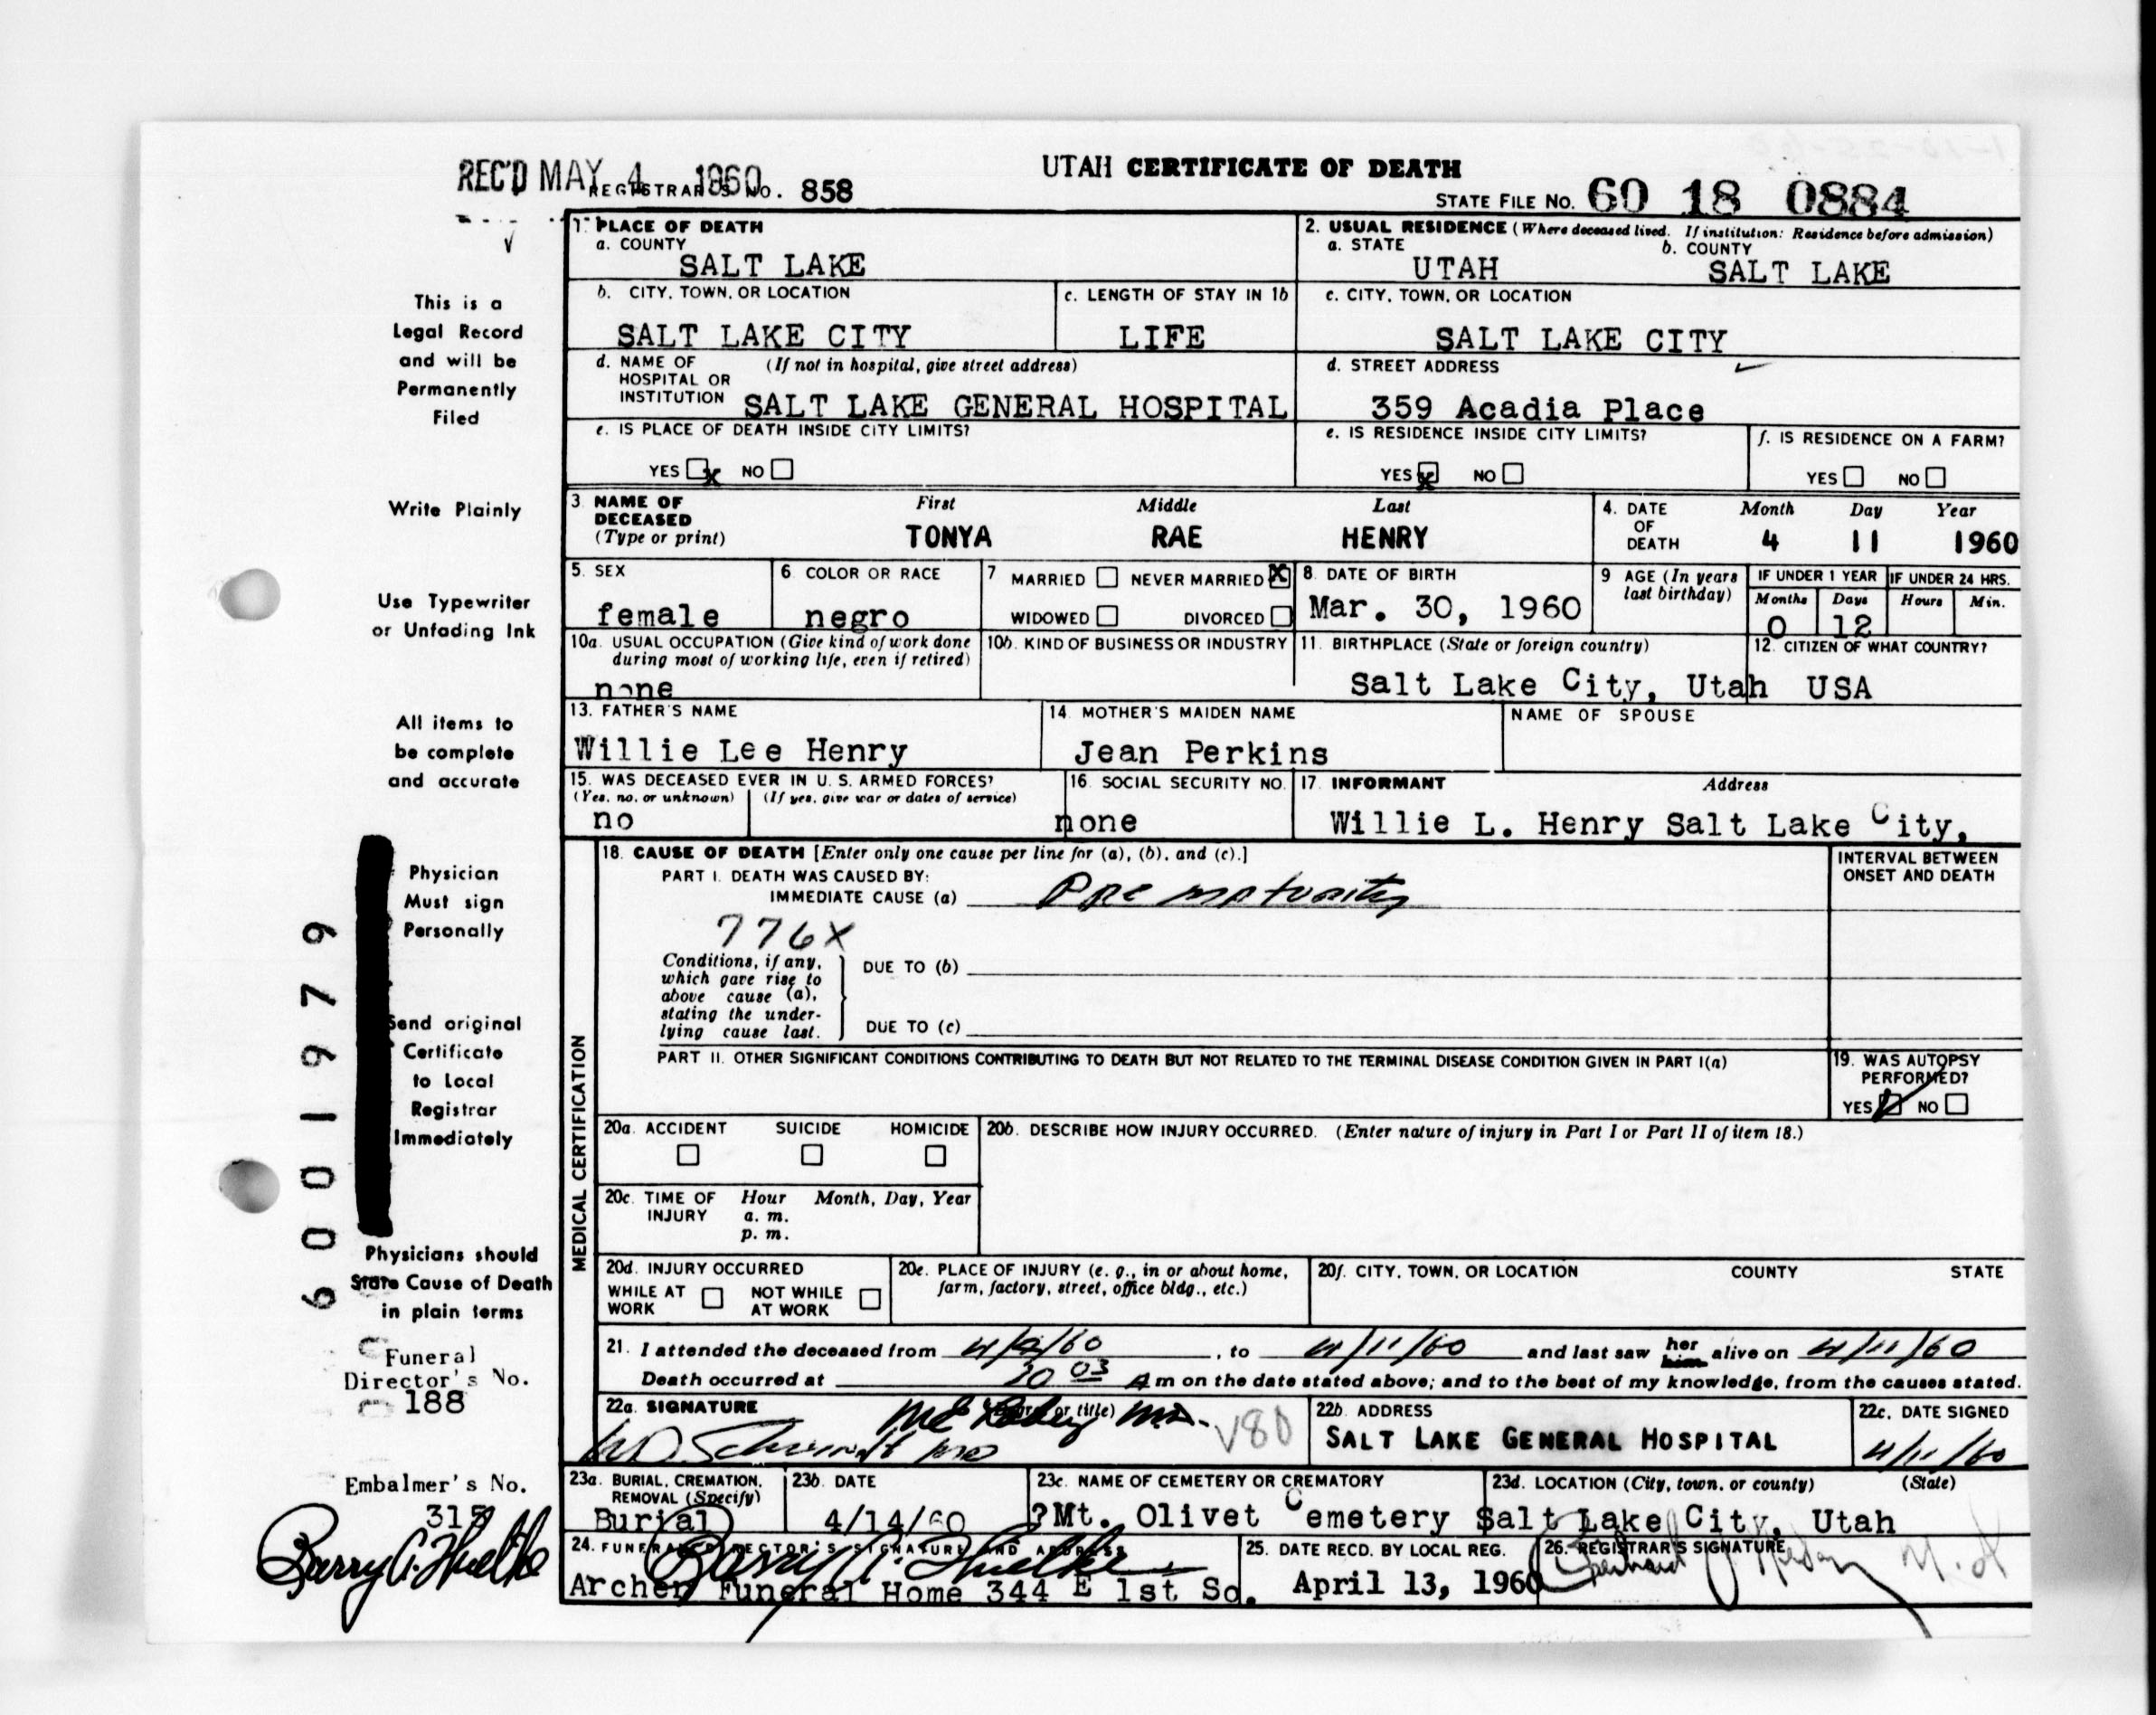 REC'D MAY 4 1960
REGISTRAR'S NO. 858
UTAH CERTIFICATE OF DEATH
STATE FILE No. 60 18 0884
This is a
Legal Record
and will be
Permanently
Filed
Write Plainly
Use Typewriter
or Unfading Ink
All items to
be complete
and accurate
Physician
Must sign
Personally
Send original
Certificate
to Local
Registrar
Immediately
Physicians should
State Cause of Death
in plain terms
6001979
Funeral
Director's No.
188
Embalmer's No.
315
1. PLACE OF DEATH
a. COUNTY
SALT LAKE
2. USUAL RESIDENCE (Where deceased lived. If institution: Residence before admission)
a. STATE b. COUNTY
UTAH SALT LAKE
b. CITY, TOWN, OR LOCATION
SALT LAKE CITY
c. LENGTH OF STAY IN 1b
LIFE
c. CITY, TOWN, OR LOCATION
SALT LAKE CITY
d. NAME OF (If not in hospital, give street address)
HOSPITAL OR
INSTITUTION SALT LAKE GENERAL HOSPITAL
d. STREET ADDRESS
359 Acadia Place
e. IS PLACE OF DEATH INSIDE CITY LIMITS?
YES x NO
e. IS RESIDENCE INSIDE CITY LIMITS?
YES x NO
f. IS RESIDENCE ON A FARM?
YES NO
3. NAME OF
DECEASED
(Type or print)
First Middle Last
TONYA RAE HENRY
4. DATE
OF
DEATH
Month Day Year
4 11 1960
5. SEX
female
6. COLOR OR RACE
negro
7 MARRIED NEVER MARRIED X
WIDOWED DIVORCED
8. DATE OF BIRTH
Mar. 30, 1960
9 AGE (In years
last birthday)
IF UNDER 1 YEAR IF UNDER 24 HRS.
Months Days Hours Min.
0 12
10a. USUAL OCCUPATION (Give kind of work done
during most of working life, even if retired)
none
10b. KIND OF BUSINESS OR INDUSTRY
11. BIRTHPLACE (State or foreign country)
Salt Lake City, Utah
12. CITIZEN OF WHAT COUNTRY?
USA
13. FATHER'S NAME
Willie Lee Henry
14. MOTHER'S MAIDEN NAME
Jean Perkins
NAME OF SPOUSE
15. WAS DECEASED EVER IN U. S. ARMED FORCES?
(Yes, no, or unknown) (If yes, give war or dates of service)
no
16. SOCIAL SECURITY NO.
none
17. INFORMANT Address
Willie L. Henry Salt Lake City,
MEDICAL CERTIFICATION
18. CAUSE OF DEATH [Enter only one cause per line for (a), (b), and (c).]
INTERVAL BETWEEN
ONSET AND DEATH
PART I. DEATH WAS CAUSED BY:
IMMEDIATE CAUSE (a) Prematurity
776X
Conditions, if any,
which gave rise to
above cause (a),
stating the under-
lying cause last.
DUE TO (b)
DUE TO (c)
PART II. OTHER SIGNIFICANT CONDITIONS CONTRIBUTING TO DEATH BUT NOT RELATED TO THE TERMINAL DISEASE CONDITION GIVEN IN PART I(a)
19. WAS AUTOPSY
PERFORMED?
YES NO
20a. ACCIDENT SUICIDE HOMICIDE
20b. DESCRIBE HOW INJURY OCCURRED. (Enter nature of injury in Part I or Part II of item 18.)
20c. TIME OF Hour Month, Day, Year
INJURY a. m.
p. m.
20d. INJURY OCCURRED
WHILE AT NOT WHILE
WORK AT WORK
20e. PLACE OF INJURY (e. g., in or about home,
farm, factory, street, office bldg., etc.)
20f. CITY, TOWN, OR LOCATION COUNTY STATE
21. I attended the deceased from , to 4/11/60 and last saw her him alive on 4/11/60
Death occurred at m on the date stated above; and to the best of my knowledge, from the causes stated.
22a. SIGNATURE (Degree or title)
V80
22b. ADDRESS
SALT LAKE GENERAL HOSPITAL
22c. DATE SIGNED
4/11/60
23a. BURIAL, CREMATION,
REMOVAL (Specify)
Burial
23b. DATE
4/14/60
23c. NAME OF CEMETERY OR CREMATORY
?Mt. Olivet Cemetery
23d. LOCATION (City, town, or county) (State)
Salt Lake City, Utah
24. FUNERAL DIRECTOR'S SIGNATURE AND ADDRESS
Archer Funeral Home 344 E 1st So.
25. DATE RECD. BY LOCAL REG.
April 13, 1960
26. REGISTRAR'S SIGNATURE